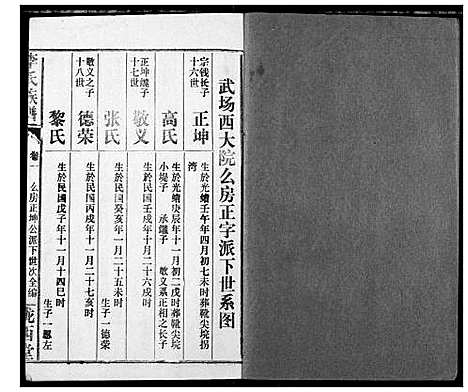 武场西大院么房正字派下世系图
宗钱长子
十六世
正坤
生於光绪壬午年四月初七未时葬靴尖境拐
湾
高氏
生於光绪庚辰年十一月初二戌时葬靴尖境
小堤子 承继子 敬义系正相之长子
正坤继子
十七世
敬义
生於民国壬戌年十月二十六戌时
张氏
生於民国癸亥年一月二十五未时
生子一德荣
敬义之子
十八世
德荣
生於民国丙戌年十一月二十七亥时
黎氏
生於民国戊子年十一月十四巳时
生子一
李氏族谱
卷一
么房正坤公派下世次全编
陇西堂